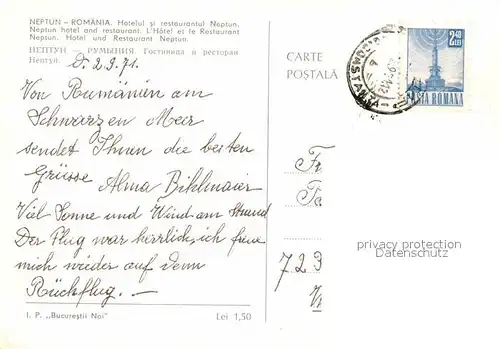 NEPTUN – ROMÂNIA. Hotelul și restaurantul Neptun.
Neptun hotel and restaurant. L'Hôtel et le Restaurant
Neptun. Hotel und Restaurant Neptun.
НЕПТУН — РУМЫНИЯ. Гостиница и ресторан
Нептун.
2.9.71.
Von Rumänien am
Schwarzen Meer
sendet Ihnen die besten
Grüsse Alma Bihlmaier
Viel Sonne und Wind am Strand
Der Flug war herrlich, ich freue
mich wieder auf dem
Rückflug. —
I. P. „Bucureștii Noi"
Lei 1,50
CARTE
POSTALĂ
CONSTANTA
2,40
LEI
POSTA ROMANA
privacy protection
Datenschutz
7 2 3